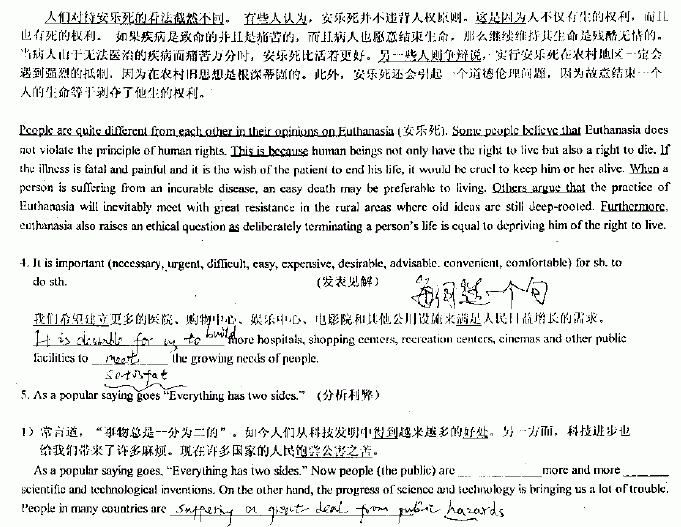 人们对待安乐死的看法截然不同。 有些人认为，安乐死并不违背人权原则。这是因为人不仅有生的权利，而且
也有死的权利。 如果疾病是致命的并且是痛苦的，而且病人也愿意结束生命，那么继续维持其生命是残酷无情的。
当病人由于无法医治的疾病而痛苦万分时，安乐死比活着更好。另一些人则争辩说，实行安乐死在农村地区一定会
遇到强烈的抵制，因为在农村旧思想是根深蒂固的。此外，安乐死还会引起一个道德伦理问题，因为故意结束一个
人的生命等于剥夺了他生的权利。
People are quite different from each other in their opinions on Euthanasia (安乐死). Some people believe that Euthanasia does
not violate the principle of human rights. This is because human beings not only have the right to live but also a right to die. If
the illness is fatal and painful and it is the wish of the patient to end his life, it would be cruel to keep him or her alive. When a
person is suffering from an incurable disease, an easy death may be preferable to living. Others argue that the practice of
Euthanasia will inevitably meet with great resistance in the rural areas where old ideas are still deep-rooted. Furthermore,
euthanasia also raises an ethical question as deliberately terminating a person's life is equal to depriving him of the right to live.
4. It is important (necessary, urgent, difficult, easy, expensive, desirable, advisable. convenient, comfortable) for sb. to
do sth. (发表见解) 每句造一个句
我们希望建立更多的医院、购物中心、娱乐中心、电影院和其他公用设施来满足人民日益增长的需求。
It is desirable for us to build more hospitals, shopping centers, recreation centers, cinemas and other public
facilities to meet the growing needs of people.
5. As a popular saying goes "Everything has two sides." (分析利弊)
1) 常言道，“事物总是一分为二的”。如今人们从科技发明中得到越来越多的好处。另一方面，科技进步也
给我们带来了许多麻烦。现在许多国家的人民饱尝公害之苦。
As a popular saying goes, "Everything has two sides." Now people (the public) are ____ more and more ____
scientific and technological inventions. On the other hand, the progress of science and technology is bringing us a lot of trouble.
People in many countries are suffering a great deal from public hazards